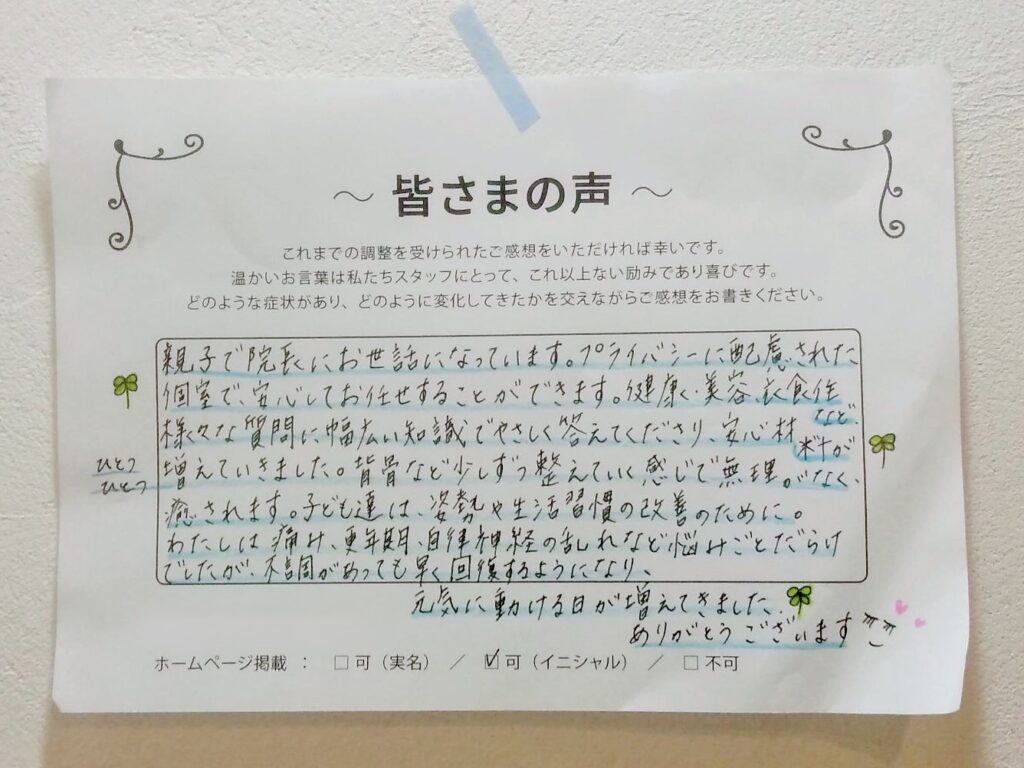 〜 皆さまの声 〜
これまでの調整を受けられたご感想をいただければ幸いです。
温かいお言葉は私たちスタッフにとって、これ以上ない励みであり喜びです。
どのような症状があり、どのように変化してきたかを交えながらご感想をお書きください。
親子で院長にお世話になっています。プライバシーに配慮された
個室で、安心してお任せすることができます。健康・美容、衣食住
など
様々な質問に幅広い知識でやさしく答えてくださり、安心材料が
ひとつ
ひとつ
増えていきました。背骨など少しずつ整えていく感じで無理がなく、
癒されます。子ども達は、姿勢や生活習慣の改善のために。
わたしは痛み、更年期、自律神経の乱れなど悩みごとだらけ
でしたが、不調があっても早く回復するようになり、
元気に動ける日が増えてきました。
ありがとうございます
ホームページ掲載 : □ 可（実名） ／ ☑ 可（イニシャル） ／ □ 不可